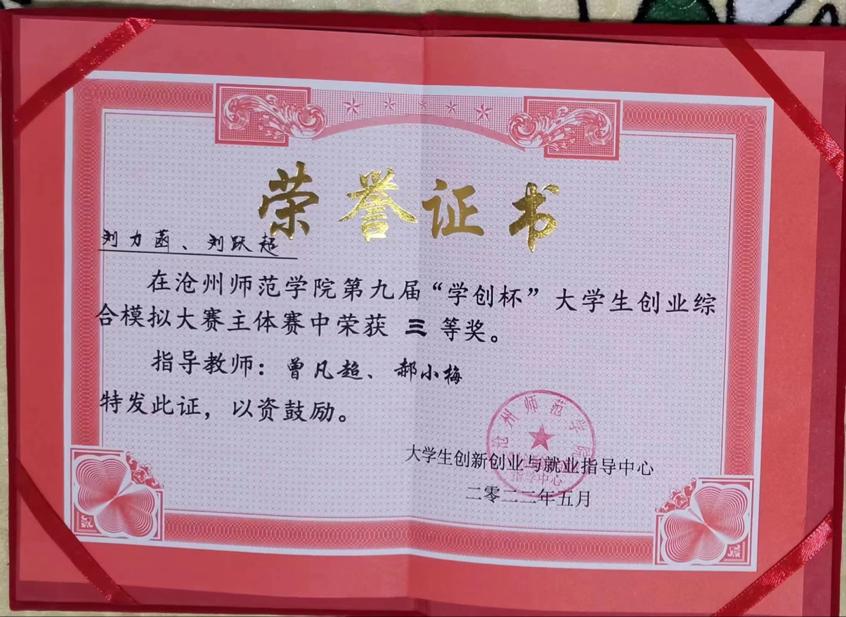 荣誉证书
刘力菡、刘跃超
在沧州师范学院第九届“学创杯”大学生创业综
合模拟大赛主体赛中荣获 三 等奖。
指导教师：曾凡超、郝小梅
特发此证，以资鼓励。
沧州师范学院
大学生创新创业与就业指导中心
指导中心
二零二二年五月